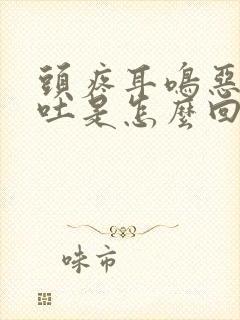 頭疼耳鳴惡
吐是怎麼回
咮市